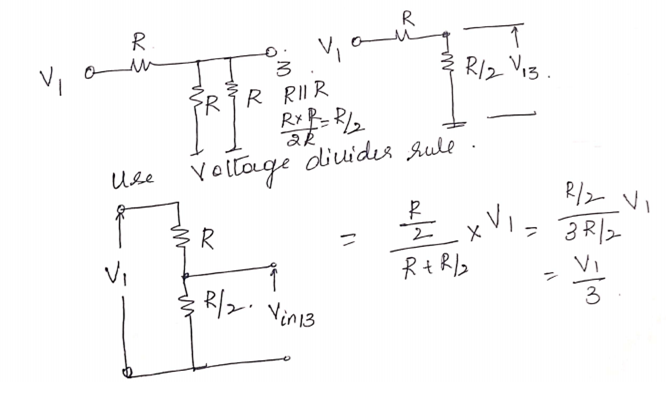 R
V1
3
R
R
R || R
R×R/2R = R/2
R
V1
R/2
V13.
Use Voltage divider rule.
V1
R
R/2.
Vin13
= (R/2)/(R + R/2) × V1 = (R/2)/(3R/2) V1
= V1/3.